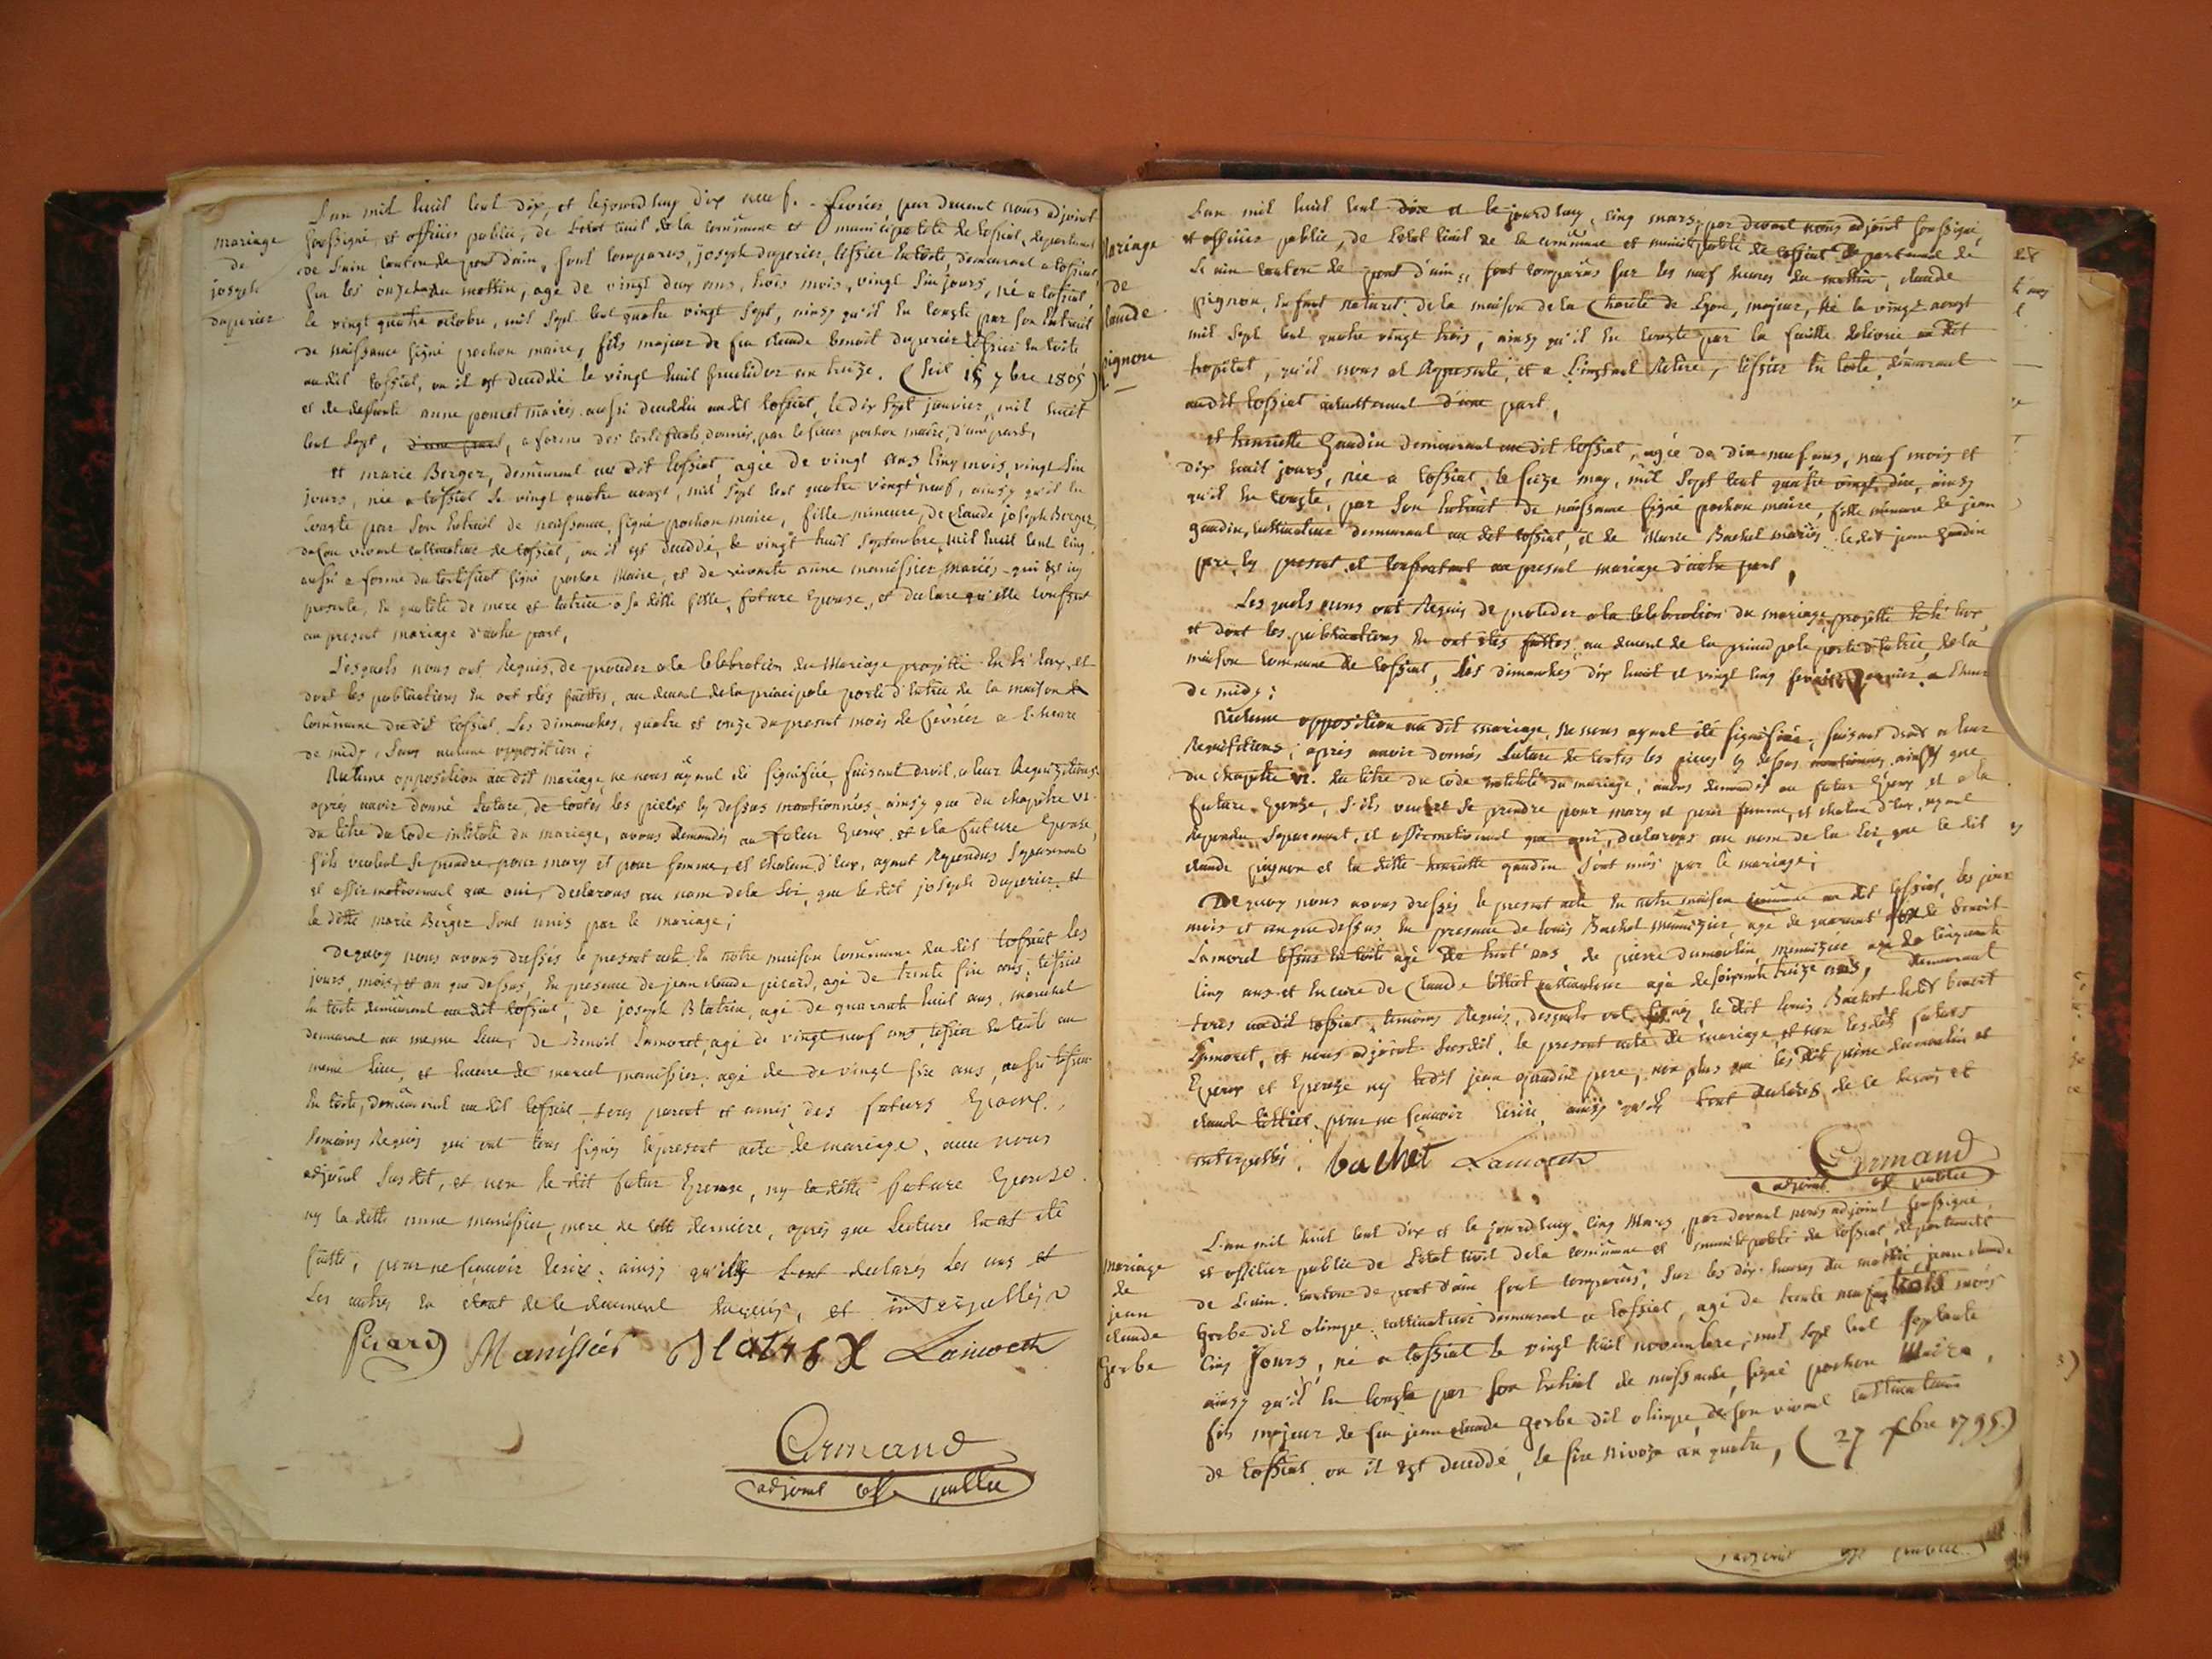 mariage
de
joseph
duperier
L'an mil huit cent dix, et le jourd'huy dix neuf fevrier, par devant nous adjoint
soussigné et officier public, de l'etat civil de la commune et municipalité de tossiat, departement
de l'ain canton de pont d'ain, sont comparus, joseph duperier, tessier en toile, demeurant a tossiat,
sur les onze heures du mattin, agé de vingt deux ans, trois mois, vingt six jours, né a tossiat,
le vingt quatre octobre, mil sept cent quatre vingt sept, ainsy qu'il en conste par son extrait
de naissance signé pochon maire, fils majeur de feu claude benoit duperier tessier en toile
audit tossiat, ou il est decedé le vingt huit fructidor an treize. (soit 15 7bre 1805)
et de defunte anne poncet mariés aussi decedée audit tossiat, le dix sept janvier, mil huit
cent sept, d'une part, a forme des certificats donnés, par le sieur pochon maire, d'une part,
et marie Berger, demeurant au dit tossiat, agée de vingt ans cinq mois, vingt six
jours, née a tossiat le vingt quatre aoust, mil sept cent quatre vingt neuf, ainsy qu'il en
conste par son extrait de naissance, signé pochon maire, fille mineure, de claude joseph Berger,
de son vivant cultivateur de tossiat, ou il est decedé, le vingt huit septembre, mil huit cent cinq
aussi a forme du certificat signé pochon Maire, et de vivante anne manissier mariés qui est icy
presente, en qualité de mere et tutrice a sa ditte fille, future epouse, et declare qu'elle consent
au present mariage d'autre part,
Lesquels nous ont requis, de proceder a la celebration du Mariage projetté entr'eux, et
dont les publications en ont etés faittes, au devant de la principale porte d'entrée de la maison
commune du dit tossiat, les dimanches, quatre et onze du present mois de fevrier a l'heure
de midy, sans aucune opposition;
Aucune opposition au dit mariage, ne nous ayant été signifiée, faisant droit, a leur requisitions,
après avoir donné lecture, de toutes les pieces cy dessus mentionnées, ainsy que du chapitre VI
du titre du code intitulé du mariage, avons demandés au futur Epoux, et a la future Epouse,
s'ils veulent se prendre, pour mary et pour femme, et chacun d'eux, ayant repondus separement
et affirmativement que oui, declarons au nom de la loi, que le dit joseph duperier, et
la ditte marie Berger sont unis par le mariage;
De quoy nous avons dressés le present acte en notre maison commune du dit tossiat les
jours, mois, et an que dessus, en presence de jean claude picard, agé de trente six ans, tessier
en toile demeurant au dit tossiat, de joseph Blatrix, agé de quarante huit ans, marechal
demeurant au meme lieu, de Benoit Lamoret, agé de vingt neuf ans, tessier en toile au
meme lieu, et encore de marcel manissier, agé de de vingt six ans, aussi tessier
en toile, demeurant au dit tossiat tous parent et amis des futurs Epoux,
temoins requis qui ont tous signés le present acte de mariage, avec nous
adjoint susdit, et non le dit futur Epoux, ny la ditte future Epouse
ny la ditte anne manissier, mere de cette derniere, après que lecture en a été
faitte, pour ne sçavoir ecrire, ainsy qu'ils l'ont declarés les uns et
les autres en etant de le deument enquis, et interpellés
Picard Manissier Blatrix Lamoret
Armand
adjoint off public
Mariage
de
claude
pignon
L'an mil huit cent dix et le jourd'huy, cinq mars, par devant nous adjoint soussigné,
et officier public, de l'etat civil de la commune et municipalité de tossiat departement de
L'ain canton de pont d'ain, sont comparus sur les neuf heures du mattin, claude
pignon, enfant naturel de la maison de la Charité de Lyon, majeur, né le vingt aoust
mil sept cent quatre vingt trois, ainsy qu'il en conste par la feuille delivrée au dit
hopital, qu'il nous a representé, et a l'instant retiré, tessier en toile, demeurant
audit tossiat actuellement d'une part,
et henriette Gaudin demeurant au dit tossiat, agée de dix neuf ans, neuf mois et
dix huit jours, née a tossiat le seize may, mil sept cent quatre vingt dix, ainsy
qu'il en conste, par son extrait de naissance signé pochon maire, fille mineure de jean
gaudin, cultivateur demeurant au dit tossiat, et de Marie Bachet mariés le dit jean gaudin
pere, cy present et consentant au present mariage d'autre part,
Lesquels nous ont requis de proceder a la celebration du mariage projetté entr'eux,
et dont les publications en ont etés faittes, au devant de la principale porte d'entrée, de la
maison commune de tossiat, les dimanches dix huit et vingt cinq fevrier dernier a l'heure
de midy;
Aucune opposition au dit mariage, ne nous ayant été signifiée, faisant droit a leur
requisitions; après avoir donnés lecture de toutes les pieces cy dessus mentionnées, ainsy que
du chapitre VI. du titre du code intitulé du mariage; avons demandés au futur Epoux et a la
future Epouse, s'ils veulent se prendre pour mary et pour femme, et chacun d'eux, ayant
repondu separement, et affirmativement que oui, declarons au nom de la loi, que le dit
claude pignon et la ditte henriette gaudin sont unis par le mariage;
De quoy nous avons dressés le present acte en notre maison commune au dit tossiat, les jour
mois et an que dessus en presence de louis Bachet menuizier, agé de quarante ans de benoit
Lamoret tessier en toile agé de trente ans, de pierre dumoulin, menuizier agé de cinquante
cinq ans et encore de Claude tissot cultivateur agé de soixante treize ans, demeurant
tous audit tossiat, temoins requis, desquels ont signés, le dit louis Bachet ledit benoit
Lamoret, et nous adjoint susdit, le present acte de mariage, et non lesdits futurs
Epoux et Epouze ny ledit jean gaudin pere, non plus que lesdits pierre dumoulin et
claude tissot pour ne sçavoir ecrire, ainsy qu'ils l'ont declarés de ce enquis et
interpellés. bachet Lamoret
Armand
adjoint off public
mariage
de
jean
claude
Gerbe
L'an mil huit cent dix et le jourd'huy cinq Mars, par devant nous adjoint soussigné
et officier public de l'etat civil de la commune et municipalité de tossiat, departement
de L'ain canton de pont d'ain sont comparus, sur les dix heures du mattin jean claude
Gerbe dit olimpe, cultivateur demeurant a tossiat, agé de trente neuf ans trois mois
cinq jours, né a tossiat le vingt huit novembre, mil sept cent septante
ainsy qu'il en conste par son extrait de naissance, signé pochon Maire,
fils majeur de feu jean claude gerbe dit olimpe, de son vivant cultivateur
de tossiat ou il est decedé, le six nivoze an quatre, (27 Xbre 1795)
adjoint off public